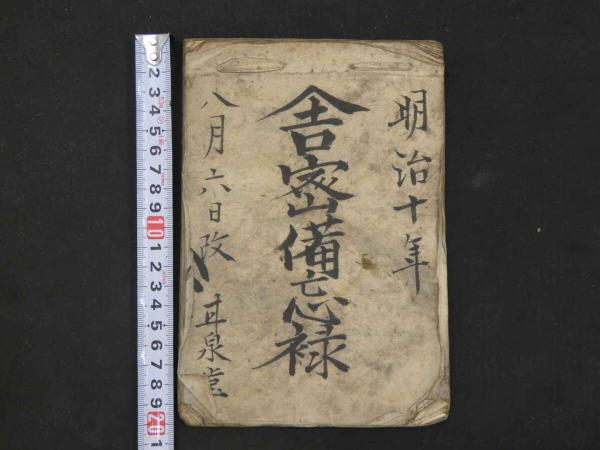 明治十年
舎密備忘禄
八月六日改 甘泉堂
2 3 4 5 6 7 8 9 10 1 2 3 4 5 6 7 8 9 20 1